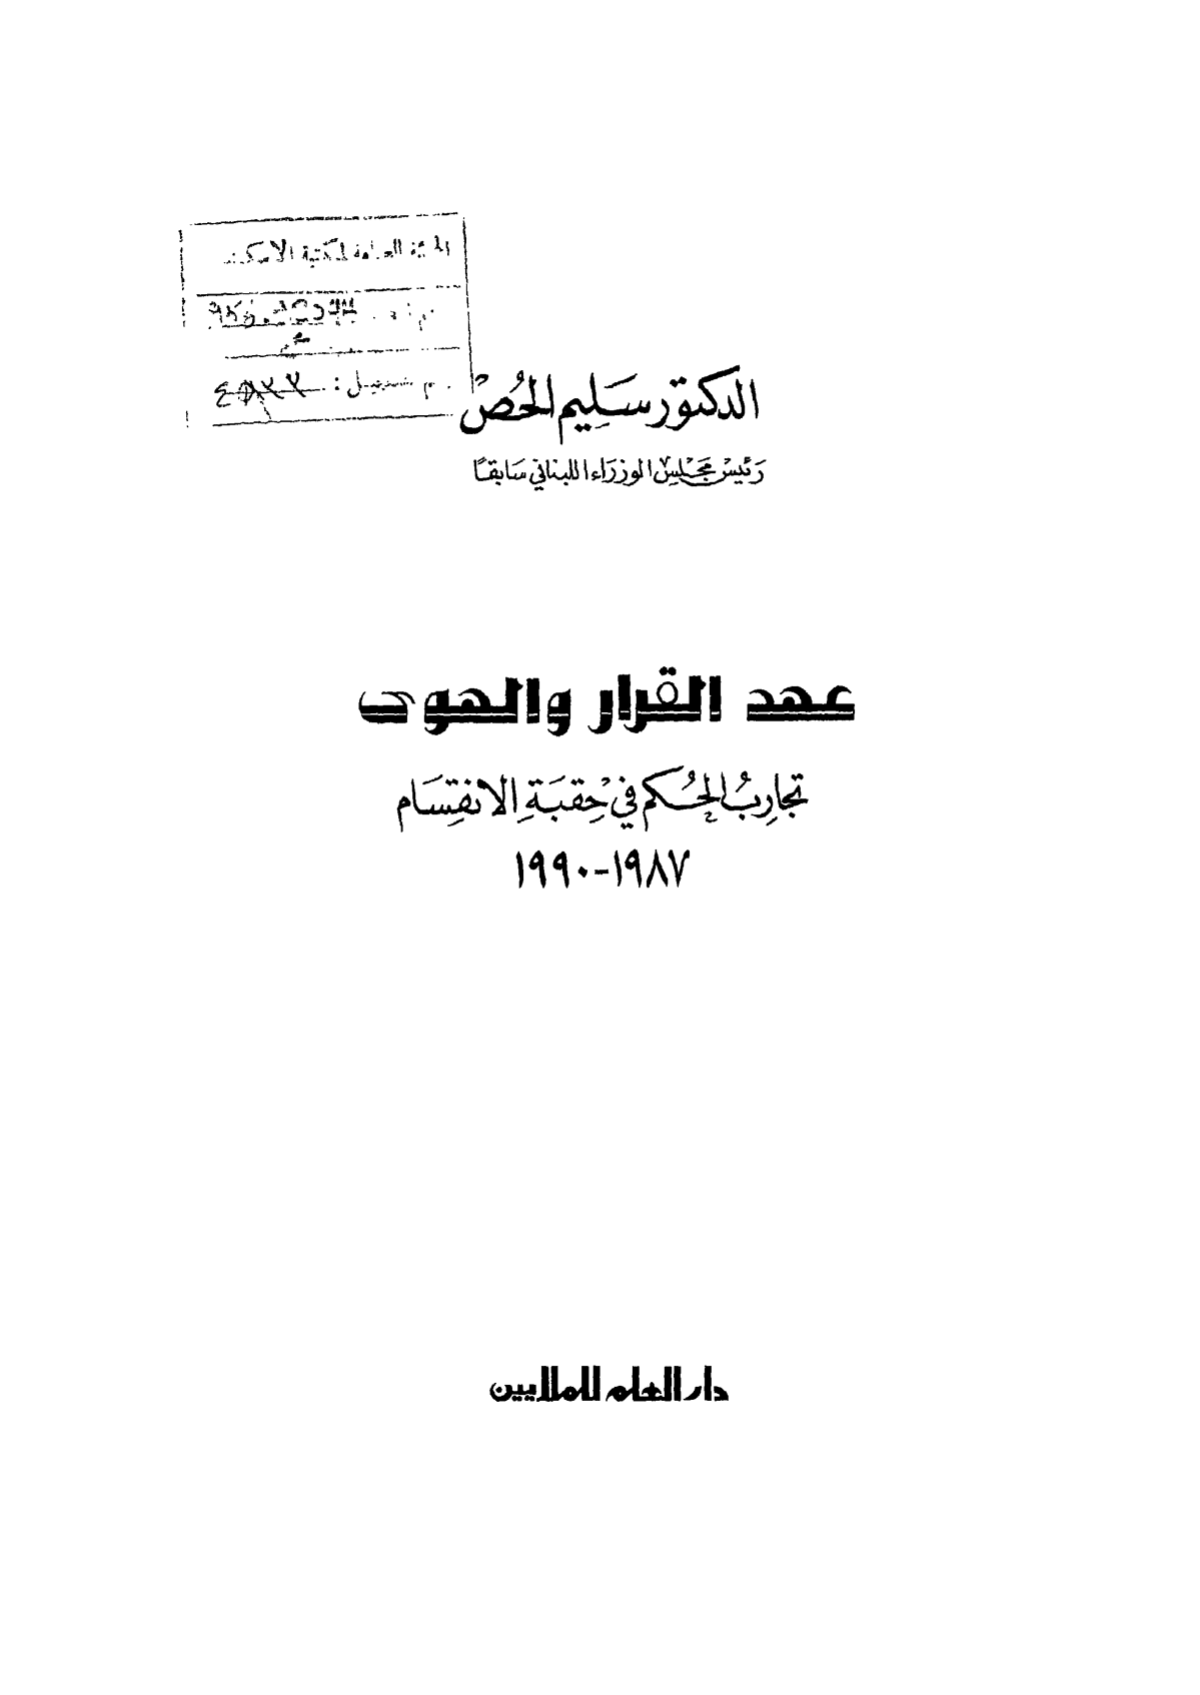 الهيئة العامة لمكتبة الاسكند
الدكتور سَليم الحُص
رَئيسْ مَجْلِسْ الوزرَاء اللبناني سَابقًا
عهد القرار والهوى
تجارِبُ الحُكم في حِقبَةِ الانقِسَام
١٩٨٧-١٩٩٠
دار العلم للملايين